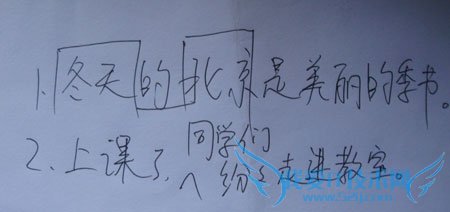 1.冬天的北京是美丽的季节。
2.上课了,同学们纷纷走进教室。